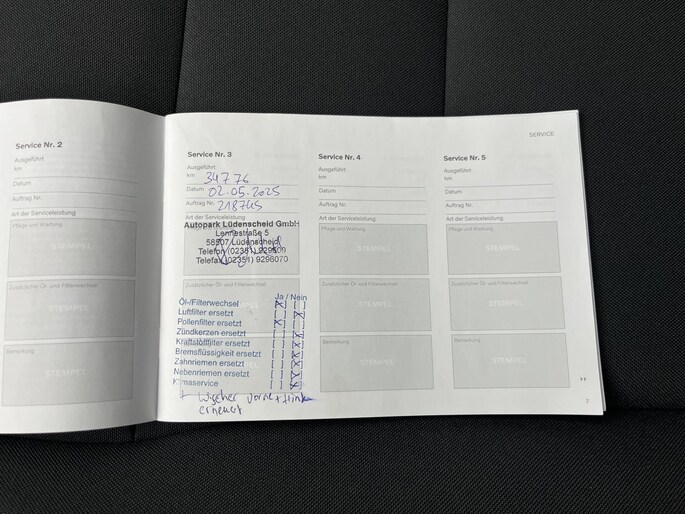 SERVICE
Service Nr. 2
Ausgeführt
km
Datum
Auftrag Nr.
Art der Serviceleistung
Pflege und Wartung
STEMPEL
Zusätzlicher Öl- und Filterwechsel
STEMPEL
Bemerkung
STEMPEL
Service Nr. 3
Ausgeführt
km 34776
Datum 02.05.2025
Auftrag Nr. 218745
Art der Serviceleistung
Autopark Lüdenscheid GmbH
Lennestraße 5
58507 Lüdenscheid
Telefon (02351)
Telefax (02351) 9298070
Zusätzlicher Öl- und Filterwechsel
Ja / Nein
Öl-/Filterwechsel [X] [ ]
Luftfilter ersetzt [ ] [X]
Pollenfilter ersetzt [X] [ ]
Zündkerzen ersetzt [ ] [X]
Kraftstofffilter ersetzt [ ] [X]
Bremsflüssigkeit ersetzt [ ] [X]
Zahnriemen ersetzt [ ] [X]
Nebenriemen ersetzt [ ] [X]
Klimaservice [ ] [X]
+ Wischer vorne + hinten
erneuert
Service Nr. 4
Ausgeführt
km
Datum
Auftrag Nr.
Art der Serviceleistung
Pflege und Wartung
STEMPEL
Zusätzlicher Öl- und Filterwechsel
STEMPEL
Bemerkung
STEMPEL
Service Nr. 5
Ausgeführt
km
Datum
Auftrag Nr.
Art der Serviceleistung
Pflege und Wartung
STEMPEL
Zusätzlicher Öl- und Filterwechsel
STEMPEL
Bemerkung
STEMPEL
7